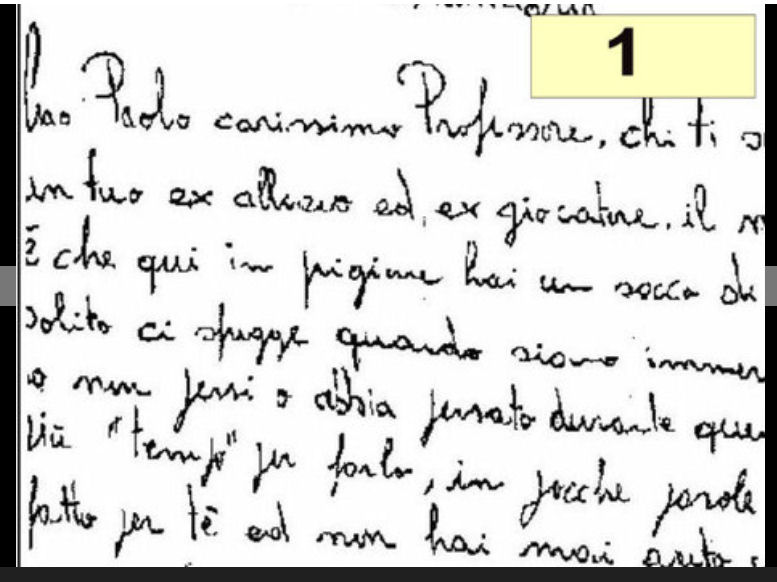 1
Paolo carissimo Professore, chi ti
un tuo ex allievo ed ex giocatore, il
è che qui in prigione hai un sacco di
solito ci sfugge quando siamo
o non pensi o abbia pensato durante
più "tempo" per farlo, in poche parole
fatto per tè ed non hai mai avuto